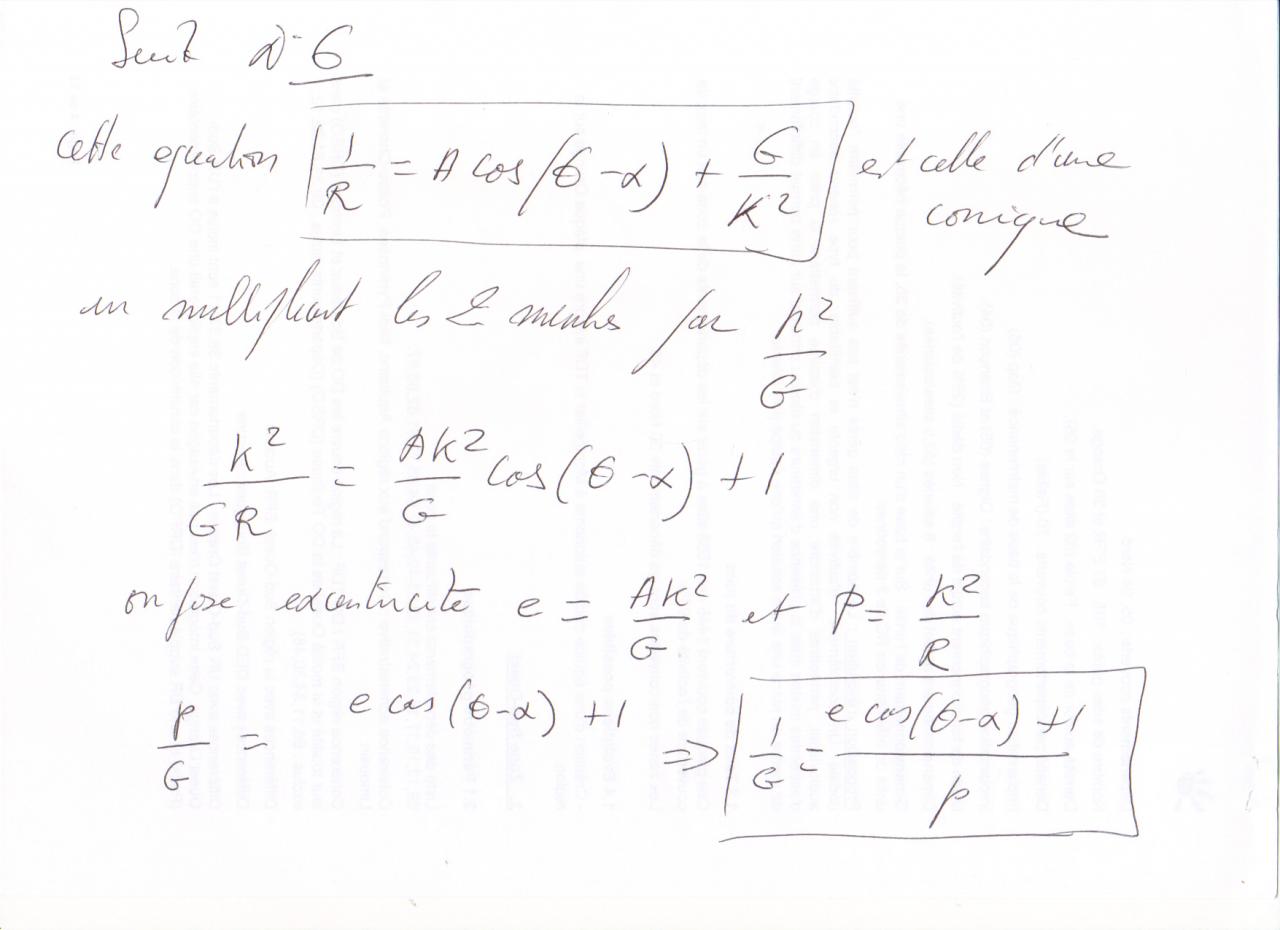 Suite N° 6
cette equation 1/R = A cos(θ-α) + G/K² est celle d'une
conique
en multipliant les 2 membres par h²/G
k²/GR = AK²/G cos(θ-α) + 1
on pose excentricité e = AK²/G et p = K²/R
p/G = e cos(θ-α) + 1 => 1/G = e cos(θ-α) + 1 / p